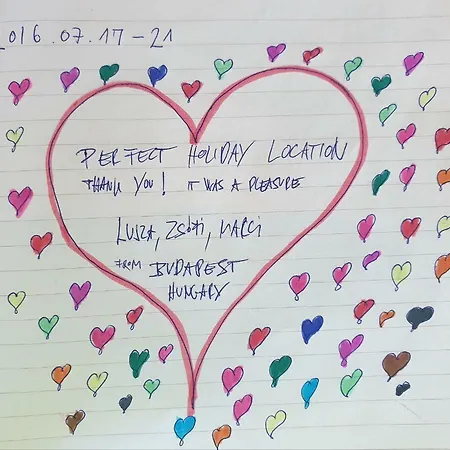 2016.07.17-21
PERFECT HOLIDAY LOCATION
THANK YOU! IT WAS A PLEASURE
LUJZA, ZSófi, MARCI
FROM BUDAPEST
HUNGARY